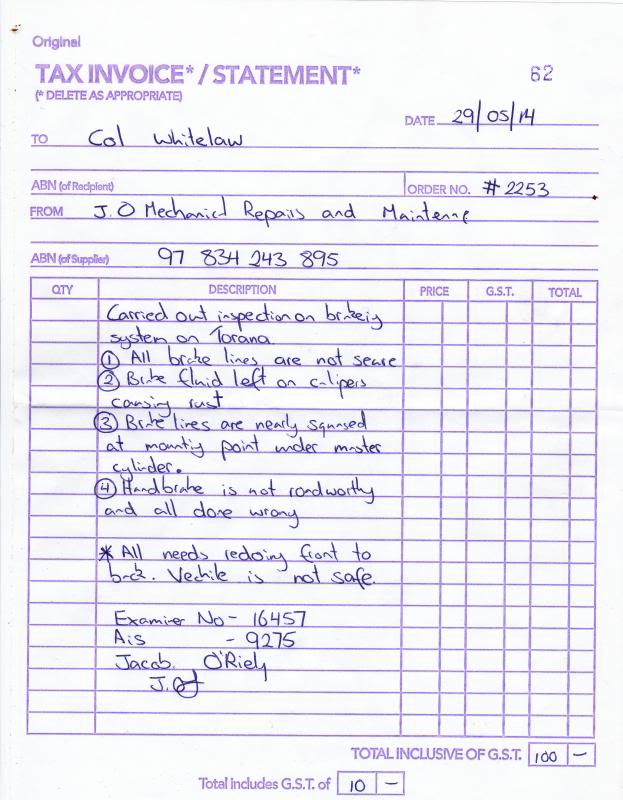 Original
TAX INVOICE* / STATEMENT*
62
(* DELETE AS APPROPRIATE)
DATE 29/05/14
TO Col Whitelaw
ABN (of Recipient)
ORDER NO. #2253
FROM J.O Mechanicl Repairs and Maintenne
ABN (of Supplier) 97 834 243 895
QTY DESCRIPTION PRICE G.S.T. TOTAL
Carried out inspection on brakeig
system on Torana.
① All brake lines are not secure
② Brake fluid left on calipers
causing rust
③ Brake lines are nearly squased
at mounting point under master
cylinder.
④ Handbrake is not roadworthy
and all done wrong
* All needs redoing front to
back. Vechile is not safe.
Examiner No - 16457
Ais - 9275
Jacob O'Riely
J.O
TOTAL INCLUSIVE OF G.S.T. 100 -
Total includes G.S.T. of 10 -